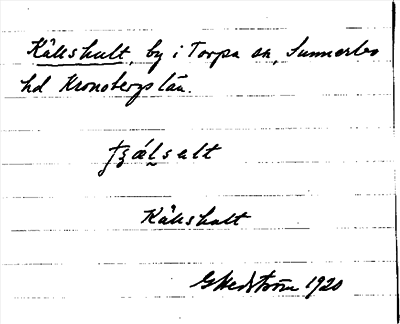 Källshult, by i Torpa sn, Sunnerbo
hd Kronobergs län.
Källshult
GHedström 1920